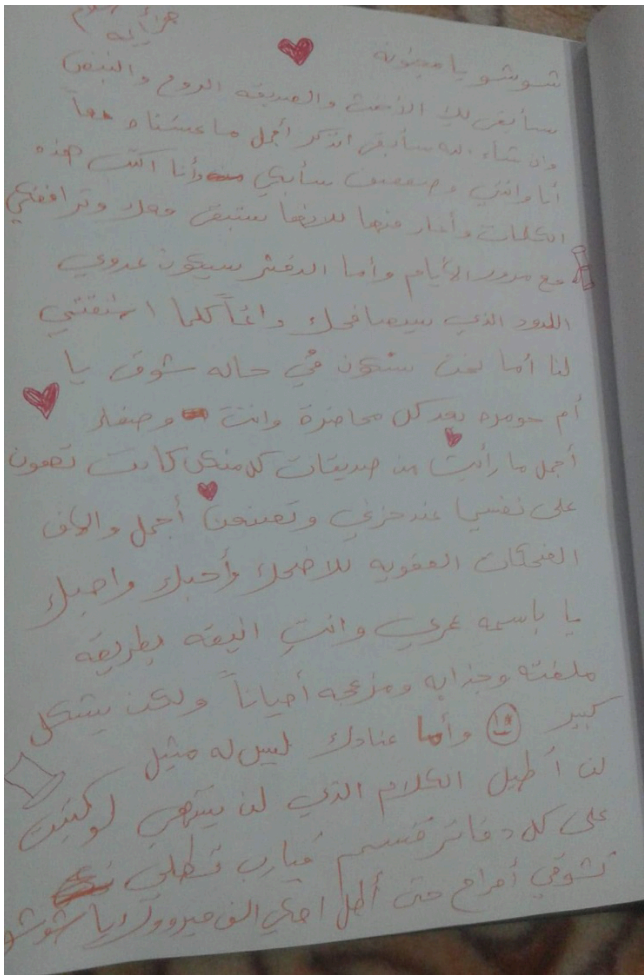 شوشو يا مجنونة
سأبقى لك الأخت والصديقه الروح والنبض
وان شاء الله سأبقى اتذكر أجمل ما عشناه معاً
أنا وانتي وصفاء سأبكي وأنا اكتب هذه
الكلمات وأغار منها لانها ستبقى معك وترافقكي
مع مرور الأيام وأما الدفتر سيكون عدوي
اللدود الذي سيصافحك دائماً كلما اشتقتي
لنا أما نحن سنكون في حاله شوق يا
أم بعد كل محاضرة وانتي وصفاء
أجمل ما رأيت من صديقات كل منكن كانت تهون
على نفسها عند حزني وتصنعن أجمل والطف
الضحكات العفويه لاضحك وأحبك واحبك
يا باسمه عمري وانتِ انيقه بطريقه
ملفته وجذابه ومزعجه أحياناً ولكن بشكل
كبير وأما عنادك ليس له مثيل
لن أطيل الكلام الذي لن ينتهي لو كتبت
على كل دفاتر قسم فيارب تظلي
تشوفي أفراح حتى أظل احكي الف مبرووك يا شوشو